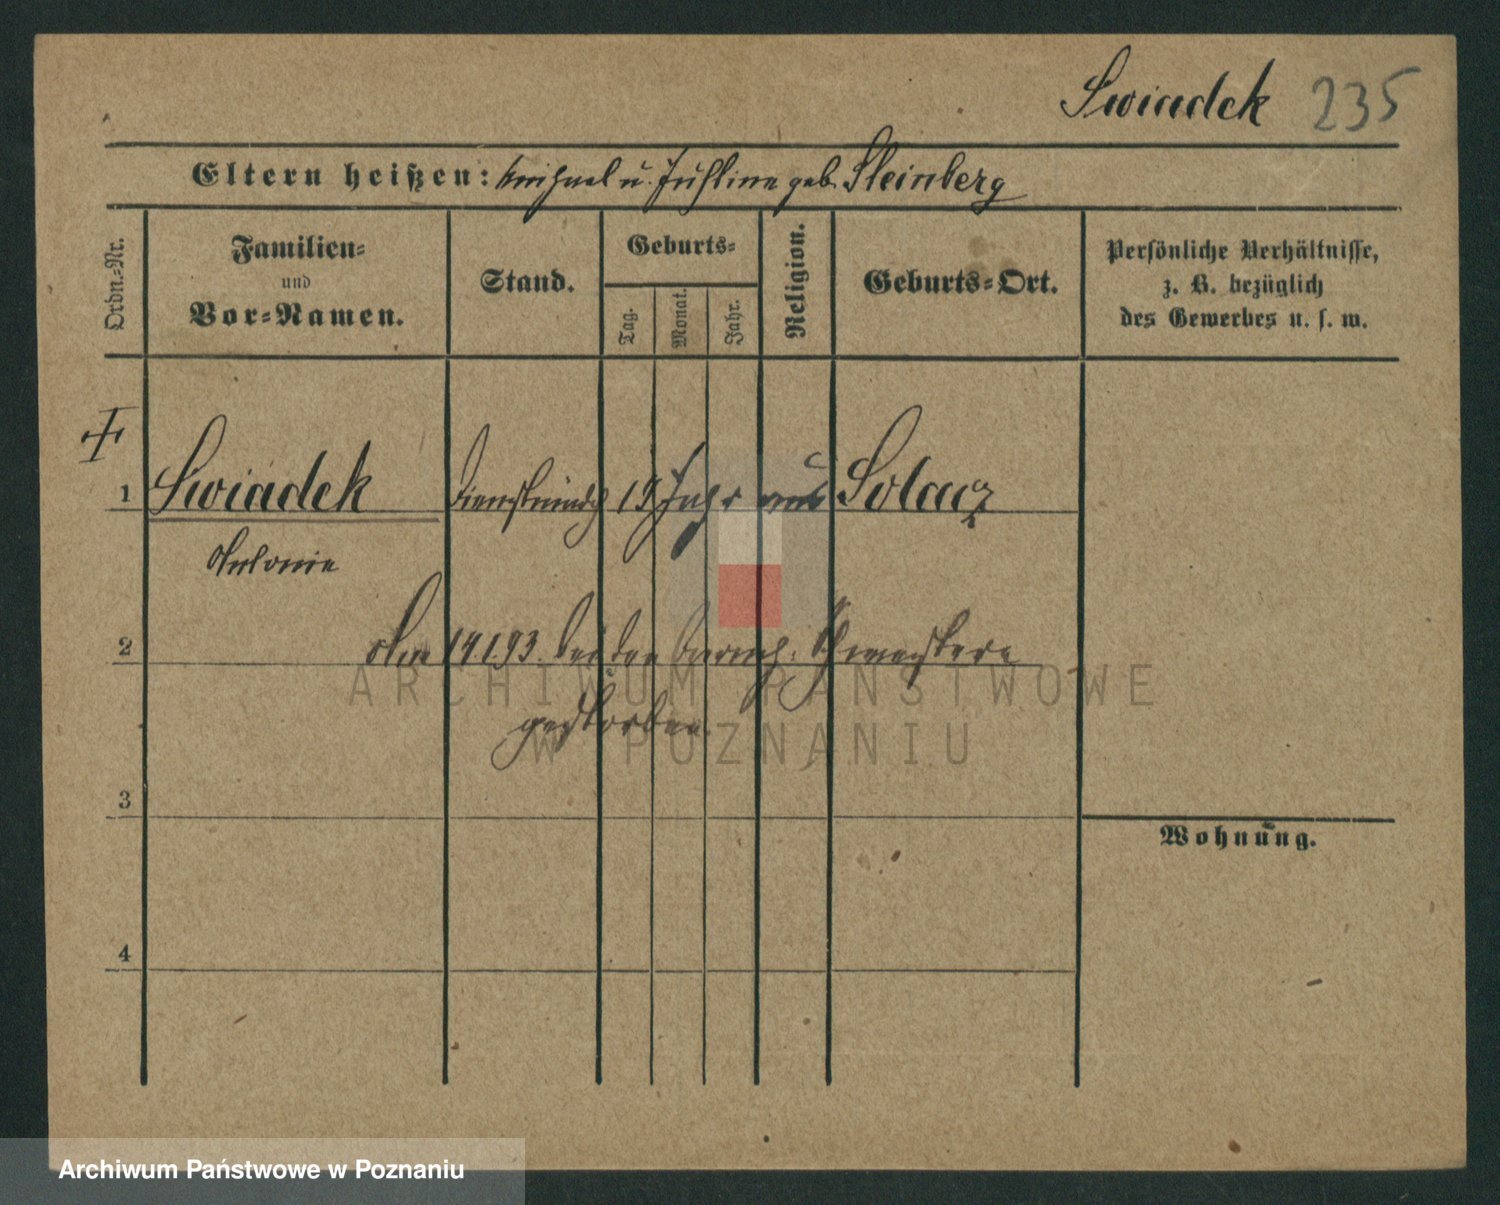 Swiadek 235
Eltern heißen: Michael u. Justine geb. Steinberg
Ordn.-Nr.
Familien-
und
Vor-Namen.
Stand.
Geburts-
Tag.
Monat.
Jahr.
Religion.
Geburts-Ort.
Persönliche Verhältnisse,
z. B. bezüglich
des Gewerbes u. s. w.
1 Swiadek Dienstmädch 19 Jahr aus Solacz
Antonie
2 Am 14193. bei den barmh. Schwestern
gestorben.
3
Wohnung.
4
ARCHIWUM PAŃSTWOWE
W POZNANIU
Archiwum Państwowe w Poznaniu